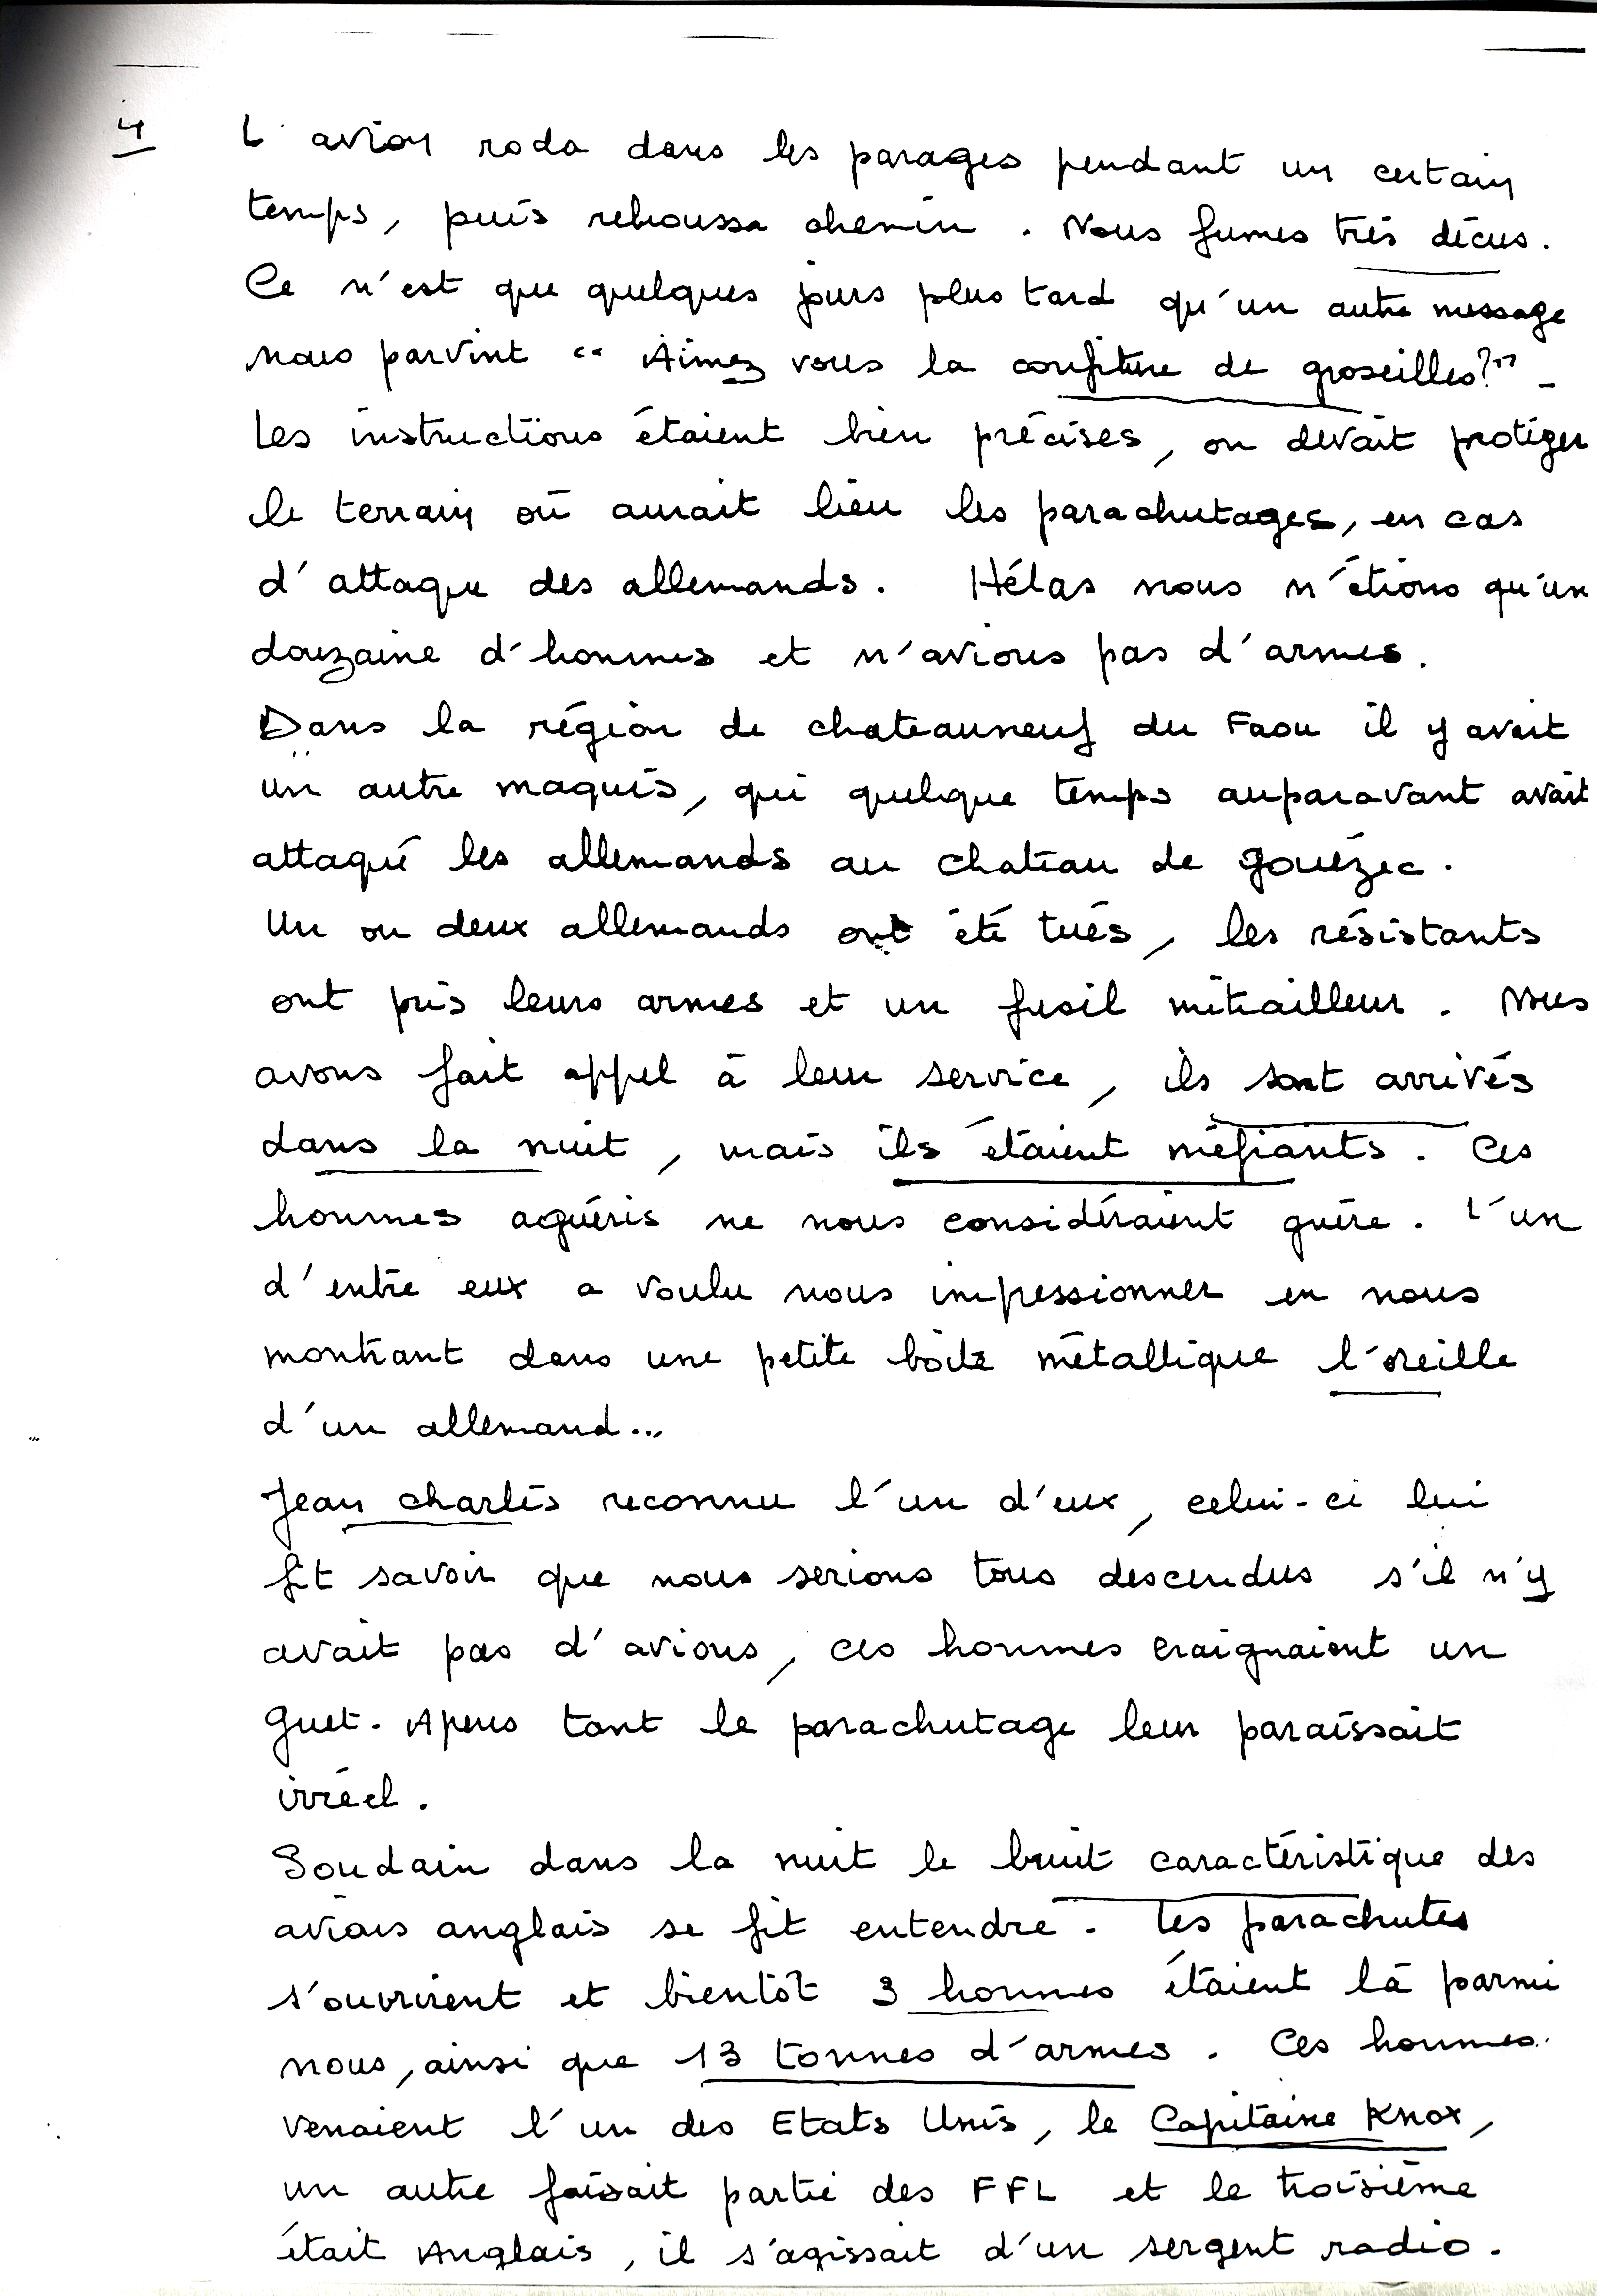 4
L'avion roda dans les parages pendant un certain
temps, puis rehoussa chemin. Nous fumes très décus.
Ce n'est que quelques jours plus tard qu'un autre message
nous parvint "Aimez vous la confiture de groseilles?" _
Les instructions étaient bien précises, on devait protéger
le terrain où aurait lieu les parachutages, en cas
d'attaque des allemands. Hélas nous n'étions qu'un
douzaine d'hommes et n'avions pas d'armes.
Dans la région de chateauneuf du Faou il y avait
un autre maquis, qui quelque temps auparavant avait
attaqué les allemands au chateau de gouézec.
Un ou deux allemands ont été tués, les résistants
ont pris leurs armes et un fusil mitrailleur. Nous
avons fait appel à leur service, ils sont arrivés
dans la nuit, mais ils étaient méfiants. Ces
hommes aguéris ne nous considéraient guère. L'un
d'entre eux a voulu nous impressionner en nous
montrant dans une petite boite métallique l'oreille
d'un allemand...
Jean charles reconnu l'un d'eux, celui-ci lui
fit savoir que nous serions tous descendus s'il n'y
avait pas d'avions, ces hommes craignaient un
guet-Apens tant le parachutage leur paraissait
irréel.
Soudain dans la nuit le bruit caractéristique des
avions anglais se fit entendre. Les parachutes
s'ouvrirent et bientôt 3 hommes étaient là parmi
nous, ainsi que 13 tonnes d'armes. Ces hommes
venaient l'un des Etats Unis, le Capitaine Knox,
un autre faisait partie des FFL et le troisième
était Anglais, il s'agissait d'un sergent radio.